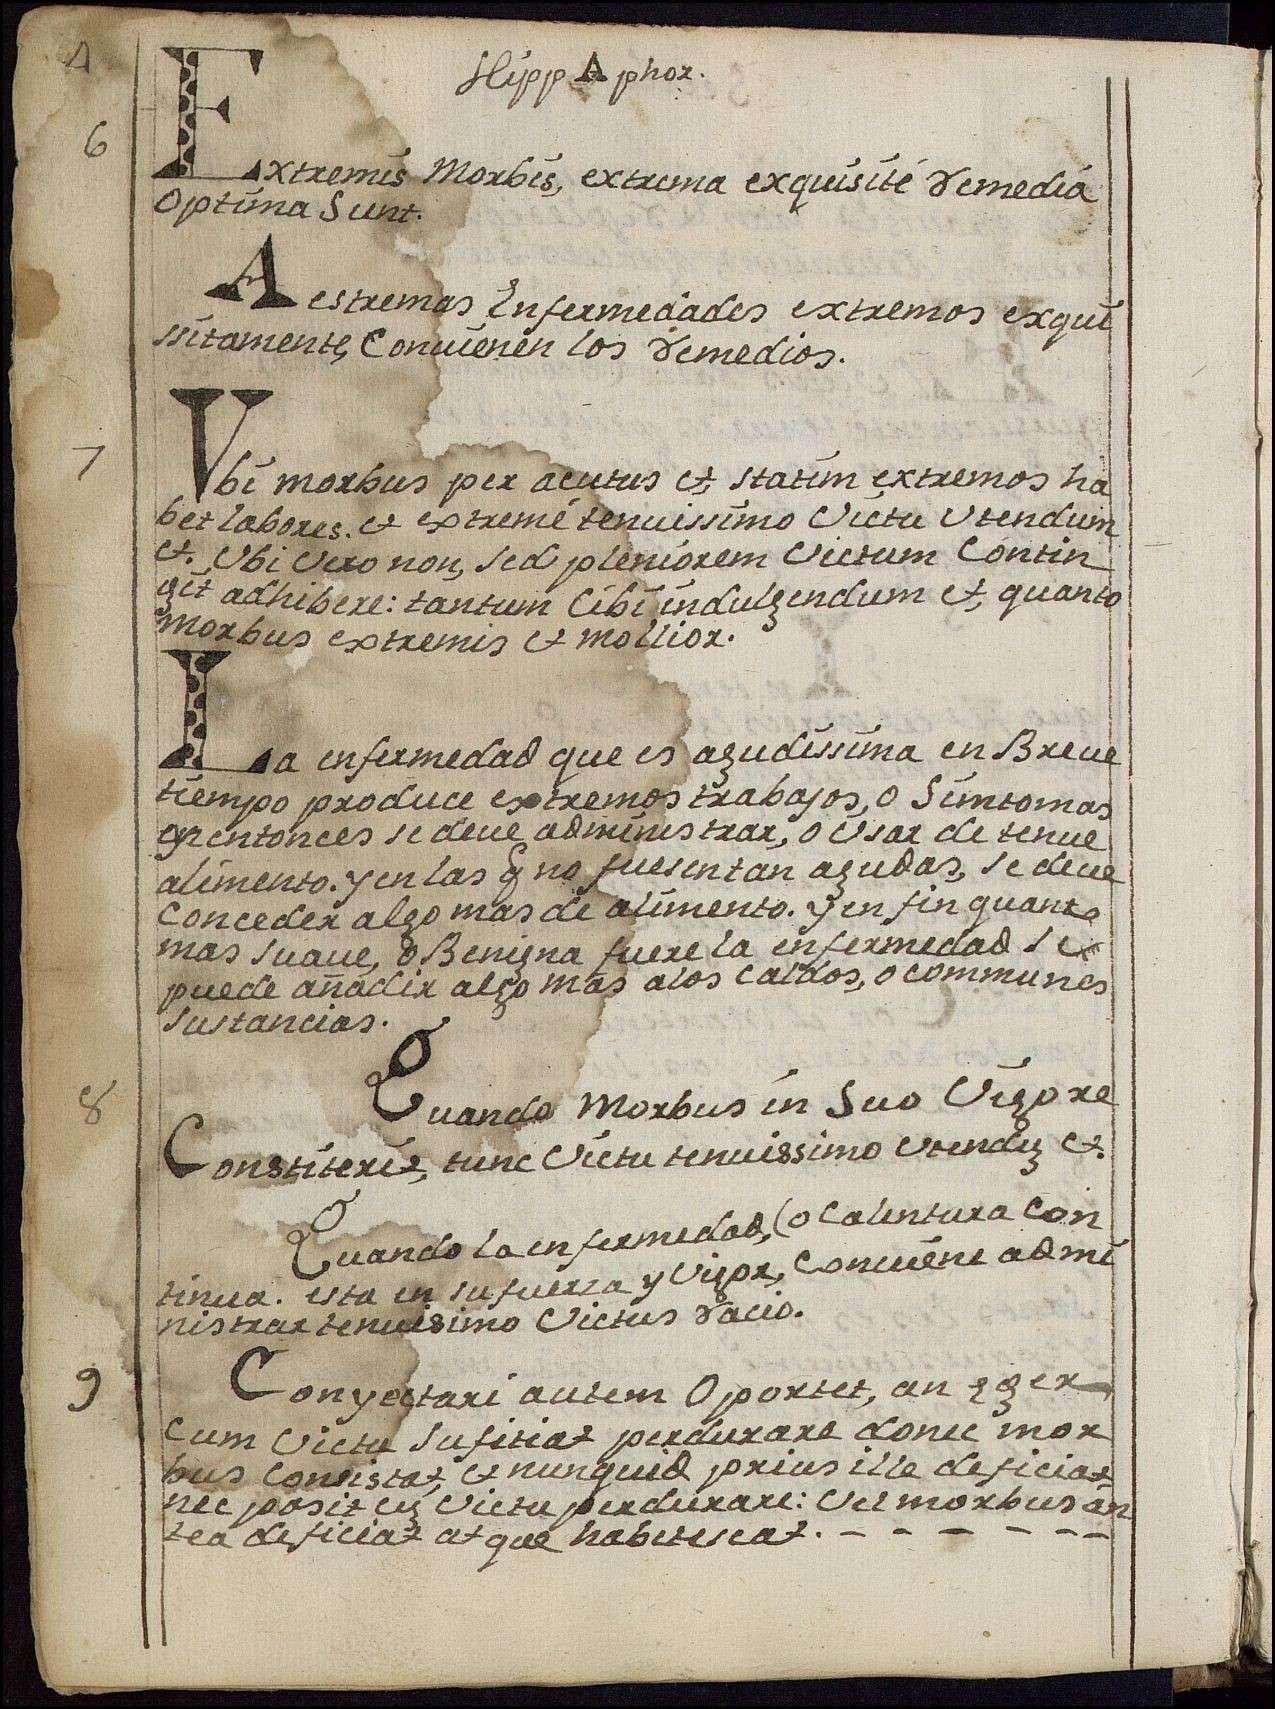 4
Hipp Aphor.
6
Extremis Morbis, extrema exquisité remedia
Optima Sunt.
A estremas Enfermedades extremos exqui
ssitamente, Convienen los remedios.
7
Vbi morbus per acutus et, statim extremos ha
bet labores. et extremé tenuissimo Victu Vtendum
et. Vbi Vero non, sed pleniorem Victum Contin
git adhibere: tantum Cibi indulgendum et, quanto
morbus extremis et mollior.
La enfermedad que es agudissima en Breue
tiempo produce extremos trabajos, o Simtomas
entonces se deue administrar, o Vsar de tenue
alimento. y en las q no fuesen tan agudas, se deue
Conceder algo mas de alimento. y en fin quanto
mas suaue, o Benigna fuere la enfermedad se
puede añadir algo mas a los Caldos, o communes
sustancias.
8
Quando Morbus in Suo Vigore
Constiterit, tunc Victu tenuissimo vtenduz et.
Quando la enfermedad, (o Calentura Con
tinua. esta en su fuerza y Vigor, Conuiene admi
nistrar tenuisimo Victus racio.
9
Conyectari autem Oportet, an
Cum Victu Suficiat perdurare donec mor
bus Consistat, et nunquid prius ille deficiat
nec posit cuz Victu perdurare: Vel morbus an
tea deficiat atque habetescat. - - - - - - -